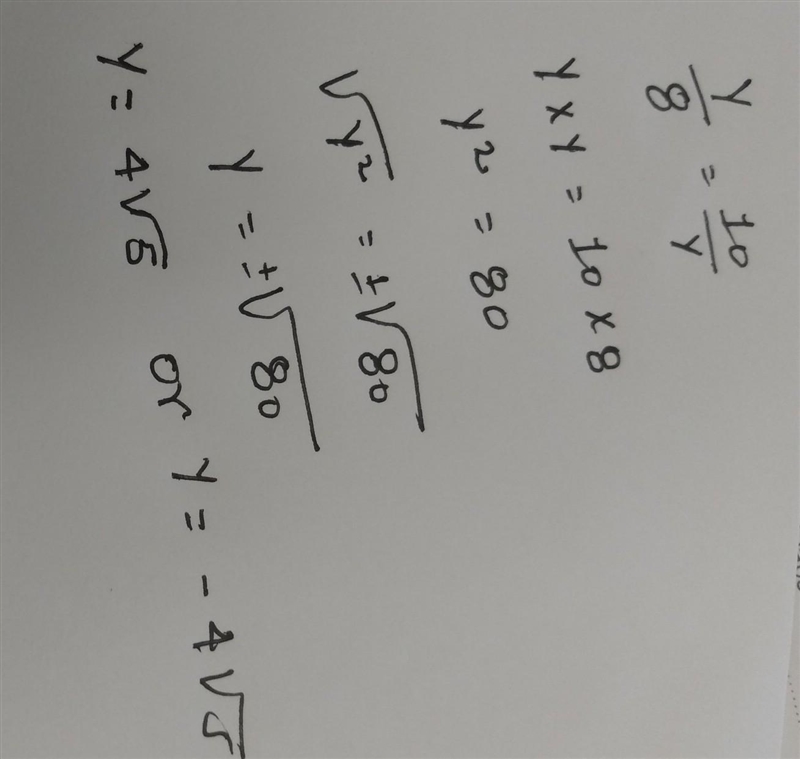 Y/8 = 10/Y
Y × Y = 10 × 8
Y² = 80
√Y² = ±√80
Y = ±√80
Y = 4√5 or Y = - 4√5